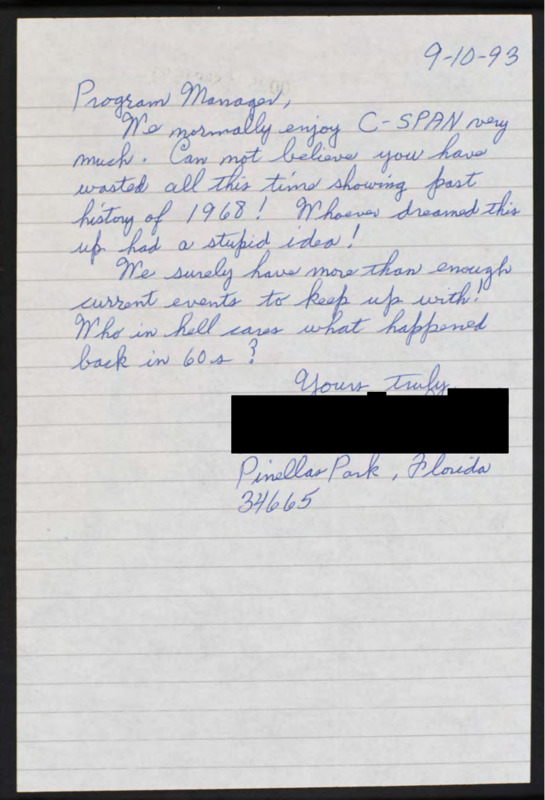 9-10-93
Program Manager,
We normally enjoy C-SPAN very
much. Can not believe you have
wasted all this time showing past
history of 1968! Whoever dreamed this
up had a stupid idea!
We surely have more than enough
current events to keep up with!
Who in hell cares what happened
back in 60s?
Yours truly
Pinellas Park, Florida
34665